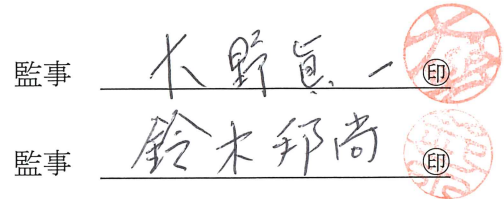 監事 大野眞一 ㊞
監事 鈴木邦尚 ㊞